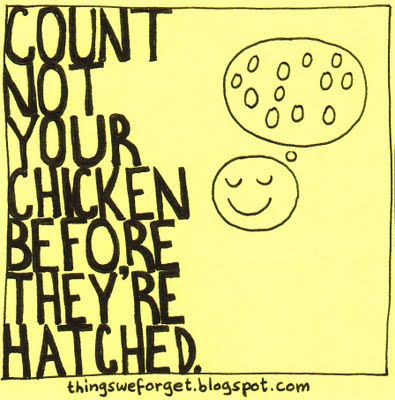 COUNT
NOT
YOUR
CHICKEN
BEFORE
THEY'RE
HATCHED.
thingsweforget.blogspot.com